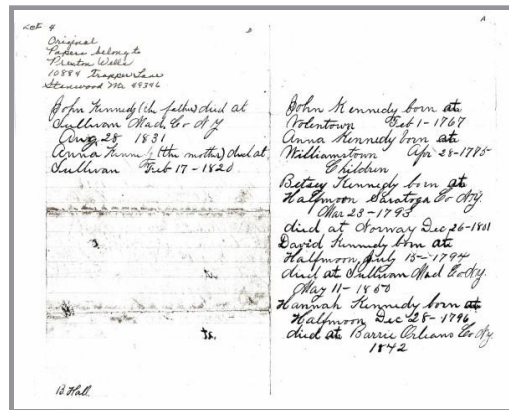 LOF 4
Original
Papers belong to
Preston Wells
10884 Trapper Lane
Stanwood Mi 49346
John Kennedy (the father) died at
Sullivan Mad. Co NY
Aug 28 1831
Anna Kennedy (the mother) died at
Sullivan Feb 17-1820
B. Hall.
A
John Kennedy born at
Volentown Feb 1-1767
Anna Kennedy born at
Williamstown Apr 28-1785
Children
Betsey Kennedy born at
Halfmoon Saratoga Co NY.
Mar 23-1793
died at Norway Dec 26-1801
David Kennedy born at
Halfmoon, July 15-1794
died at Sullivan Mad Co NY.
May 11-1850
Hannah Kennedy born at
Halfmoon Dec 28-1796
died at Barrie Orleans Co NY.
1842